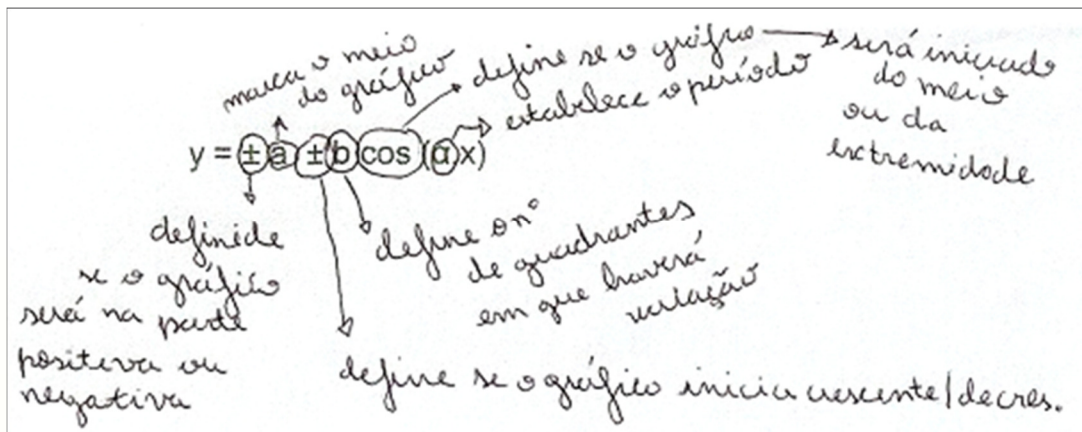 marca o meio
do gráfico
define se o gráfico
será iniciado
do meio
ou da
extremidade
estabelece o período
y = ± a ± b cos (α x)
definide
se o gráfico
será na parte
positiva ou
negativa
define o nº
de quadrantes
em que haverá
define se o gráfico inicia crescente/decres.